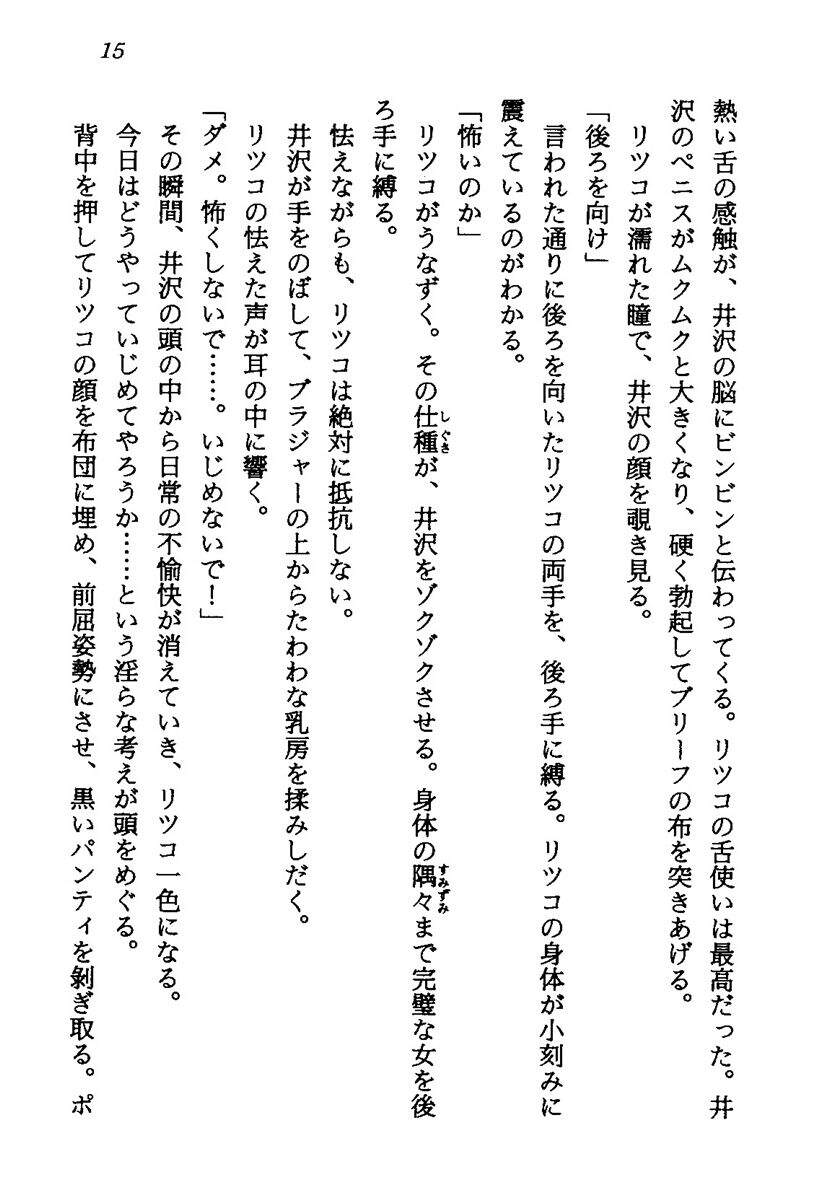 15
熱い舌の感触が、井沢の脳にビンビンと伝わってくる。リツコの舌使いは最高だった。井
沢のペニスがムクムクと大きくなり、硬く勃起してブリーフの布を突きあげる。
リツコが濡れた瞳で、井沢の顔を覗き見る。
「後ろを向け」
言われた通りに後ろを向いたリツコの両手を、後ろ手に縛る。リツコの身体が小刻みに
震えているのがわかる。
「怖いのか」
リツコがうなずく。その仕種が、井沢をゾクゾクさせる。身体の隅々まで完璧な女を後
ろ手に縛る。
怯えながらも、リツコは絶対に抵抗しない。
井沢が手をのばして、ブラジャーの上からたわわな乳房を揉みしだく。
リツコの怯えた声が耳の中に響く。
「ダメ。怖くしないで……。いじめないで！」
その瞬間、井沢の頭の中から日常の不愉快が消えていき、リツコ一色になる。
今日はどうやっていじめてやろうか……という淫らな考えが頭をめぐる。
背中を押してリツコの顔を布団に埋め、前屈姿勢にさせ、黒いパンティを剝ぎ取る。ポ